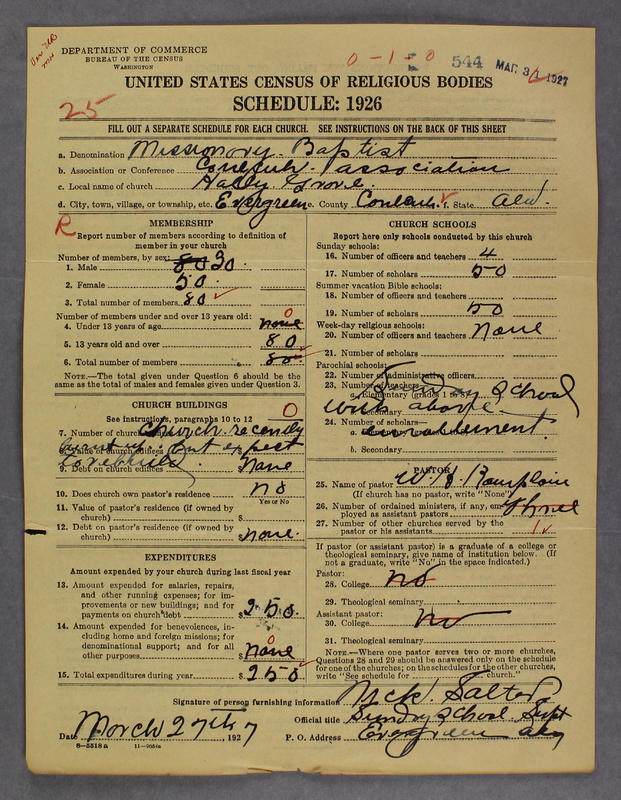 DEPARTMENT OF COMMERCE
BUREAU OF THE CENSUS
WASHINGTON
0 - 1 - 0
544
MAR 31 1927
UNITED STATES CENSUS OF RELIGIOUS BODIES
25
SCHEDULE: 1926
FILL OUT A SEPARATE SCHEDULE FOR EACH CHURCH. SEE INSTRUCTIONS ON THE BACK OF THIS SHEET
a. Denomination Missionary Baptist
b. Association or Conference Conecuh association
c. Local name of church Hally Grove
d. City, town, village, or township, etc. Evergreen e. County Conecuh f. State Ala.
R
MEMBERSHIP
Report number of members according to definition of
member in your church
Number of members, by sex:
1. Male 80 30
2. Female 50
3. Total number of members 80
Number of members under and over 13 years old:
4. Under 13 years of age none 0
5. 13 years old and over 80
6. Total number of members 80
NOTE.—The total given under Question 6 should be the
same as the total of males and females given under Question 3.
CHURCH BUILDINGS
See instructions, paragraphs 10 to 12
0
7. Number of church church recently
8. Value of church edifices burnt up but expect
9. Debt on church edifices to rebuild. None
10. Does church own pastor's residence no
Yes or No
11. Value of pastor's residence (if owned by
church) $
12. Debt on pastor's residence (if owned by
church) $ none.
EXPENDITURES
Amount expended by your church during last fiscal year
13. Amount expended for salaries, repairs,
and other running expenses; for im-
provements or new buildings; and for
payments on church debt $ 250.
14. Amount expended for benevolences, in-
cluding home and foreign missions; for
denominational support; and for all
other purposes $ none 0
15. Total expenditures during year $ 250
CHURCH SCHOOLS
Report here only schools conducted by this church
Sunday schools:
16. Number of officers and teachers 4
17. Number of scholars 50
Summer vacation Bible schools:
18. Number of officers and teachers
19. Number of scholars 50
Week-day religious schools:
20. Number of officers and teachers None
21. Number of scholars
Parochial schools:
22. Number of administrative officers
23. Number of teachers—
a. Elementary (grades 1 to 8) Sunday School
b. Secondary with above
24. Number of scholars—
a. Elementary enrollement.
b. Secondary
PASTOR
25. Name of pastor W. J.
(If church has no pastor, write "None")
26. Number of ordained ministers, if any, em-
ployed as assistant pastors
27. Number of other churches served by the
pastor or his assistants 1
If pastor (or assistant pastor) is a graduate of a college or
theological seminary, give name of institution below. (If
not a graduate, write "No" in the space indicated.)
Pastor:
28. College no
29. Theological seminary
Assistant pastor:
30. College no
31. Theological seminary
NOTE.—Where one pastor serves two or more churches,
Questions 28 and 29 should be answered only on the schedule
for one of the churches; on the schedules for the other churches,
write "See schedule for church."
Signature of person furnishing information McK. Salter
Official title Sunday School Supt
Date March 27th, 1927 P. O. Address Evergreen Ala
8—5518 a 11—9054a